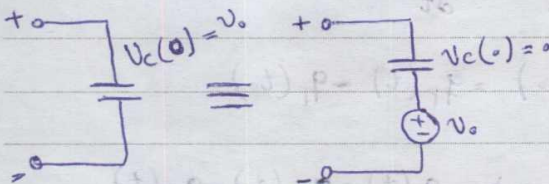 + Vc(0) = v₀
-
≡
+ Vc(0) = 0
+
- v₀
-